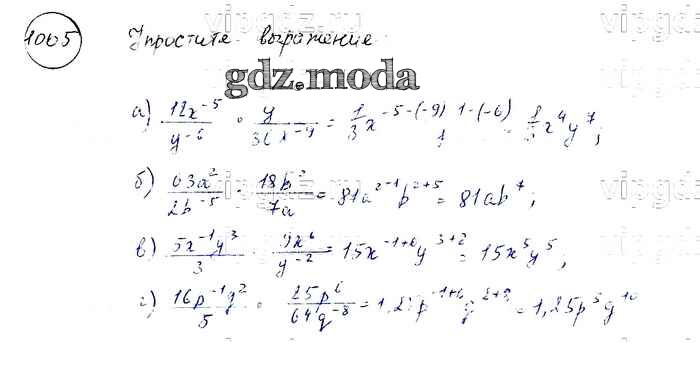 1005 Упростите выражение
gdz.moda
а) 12x⁻⁵/y⁻⁶ · y/36x⁻⁹ = 1/3 x⁻⁵⁻⁽⁻⁹⁾ y¹⁻⁽⁻⁶⁾ = 1/3 x⁴y⁷;
б) 63a²/2b⁻⁵ · 18b²/7a = 81a²⁻¹b²⁺⁵ = 81ab⁷;
в) 5x⁻¹y³/3 · 9x⁶/y⁻² = 15x⁻¹⁺⁶y³⁺² = 15x⁵y⁵;
г) 16p⁻¹q²/5 · 25p⁶/64q⁻⁸ = 1,25p⁻¹⁺⁶q²⁺⁸ = 1,25p⁵q¹⁰